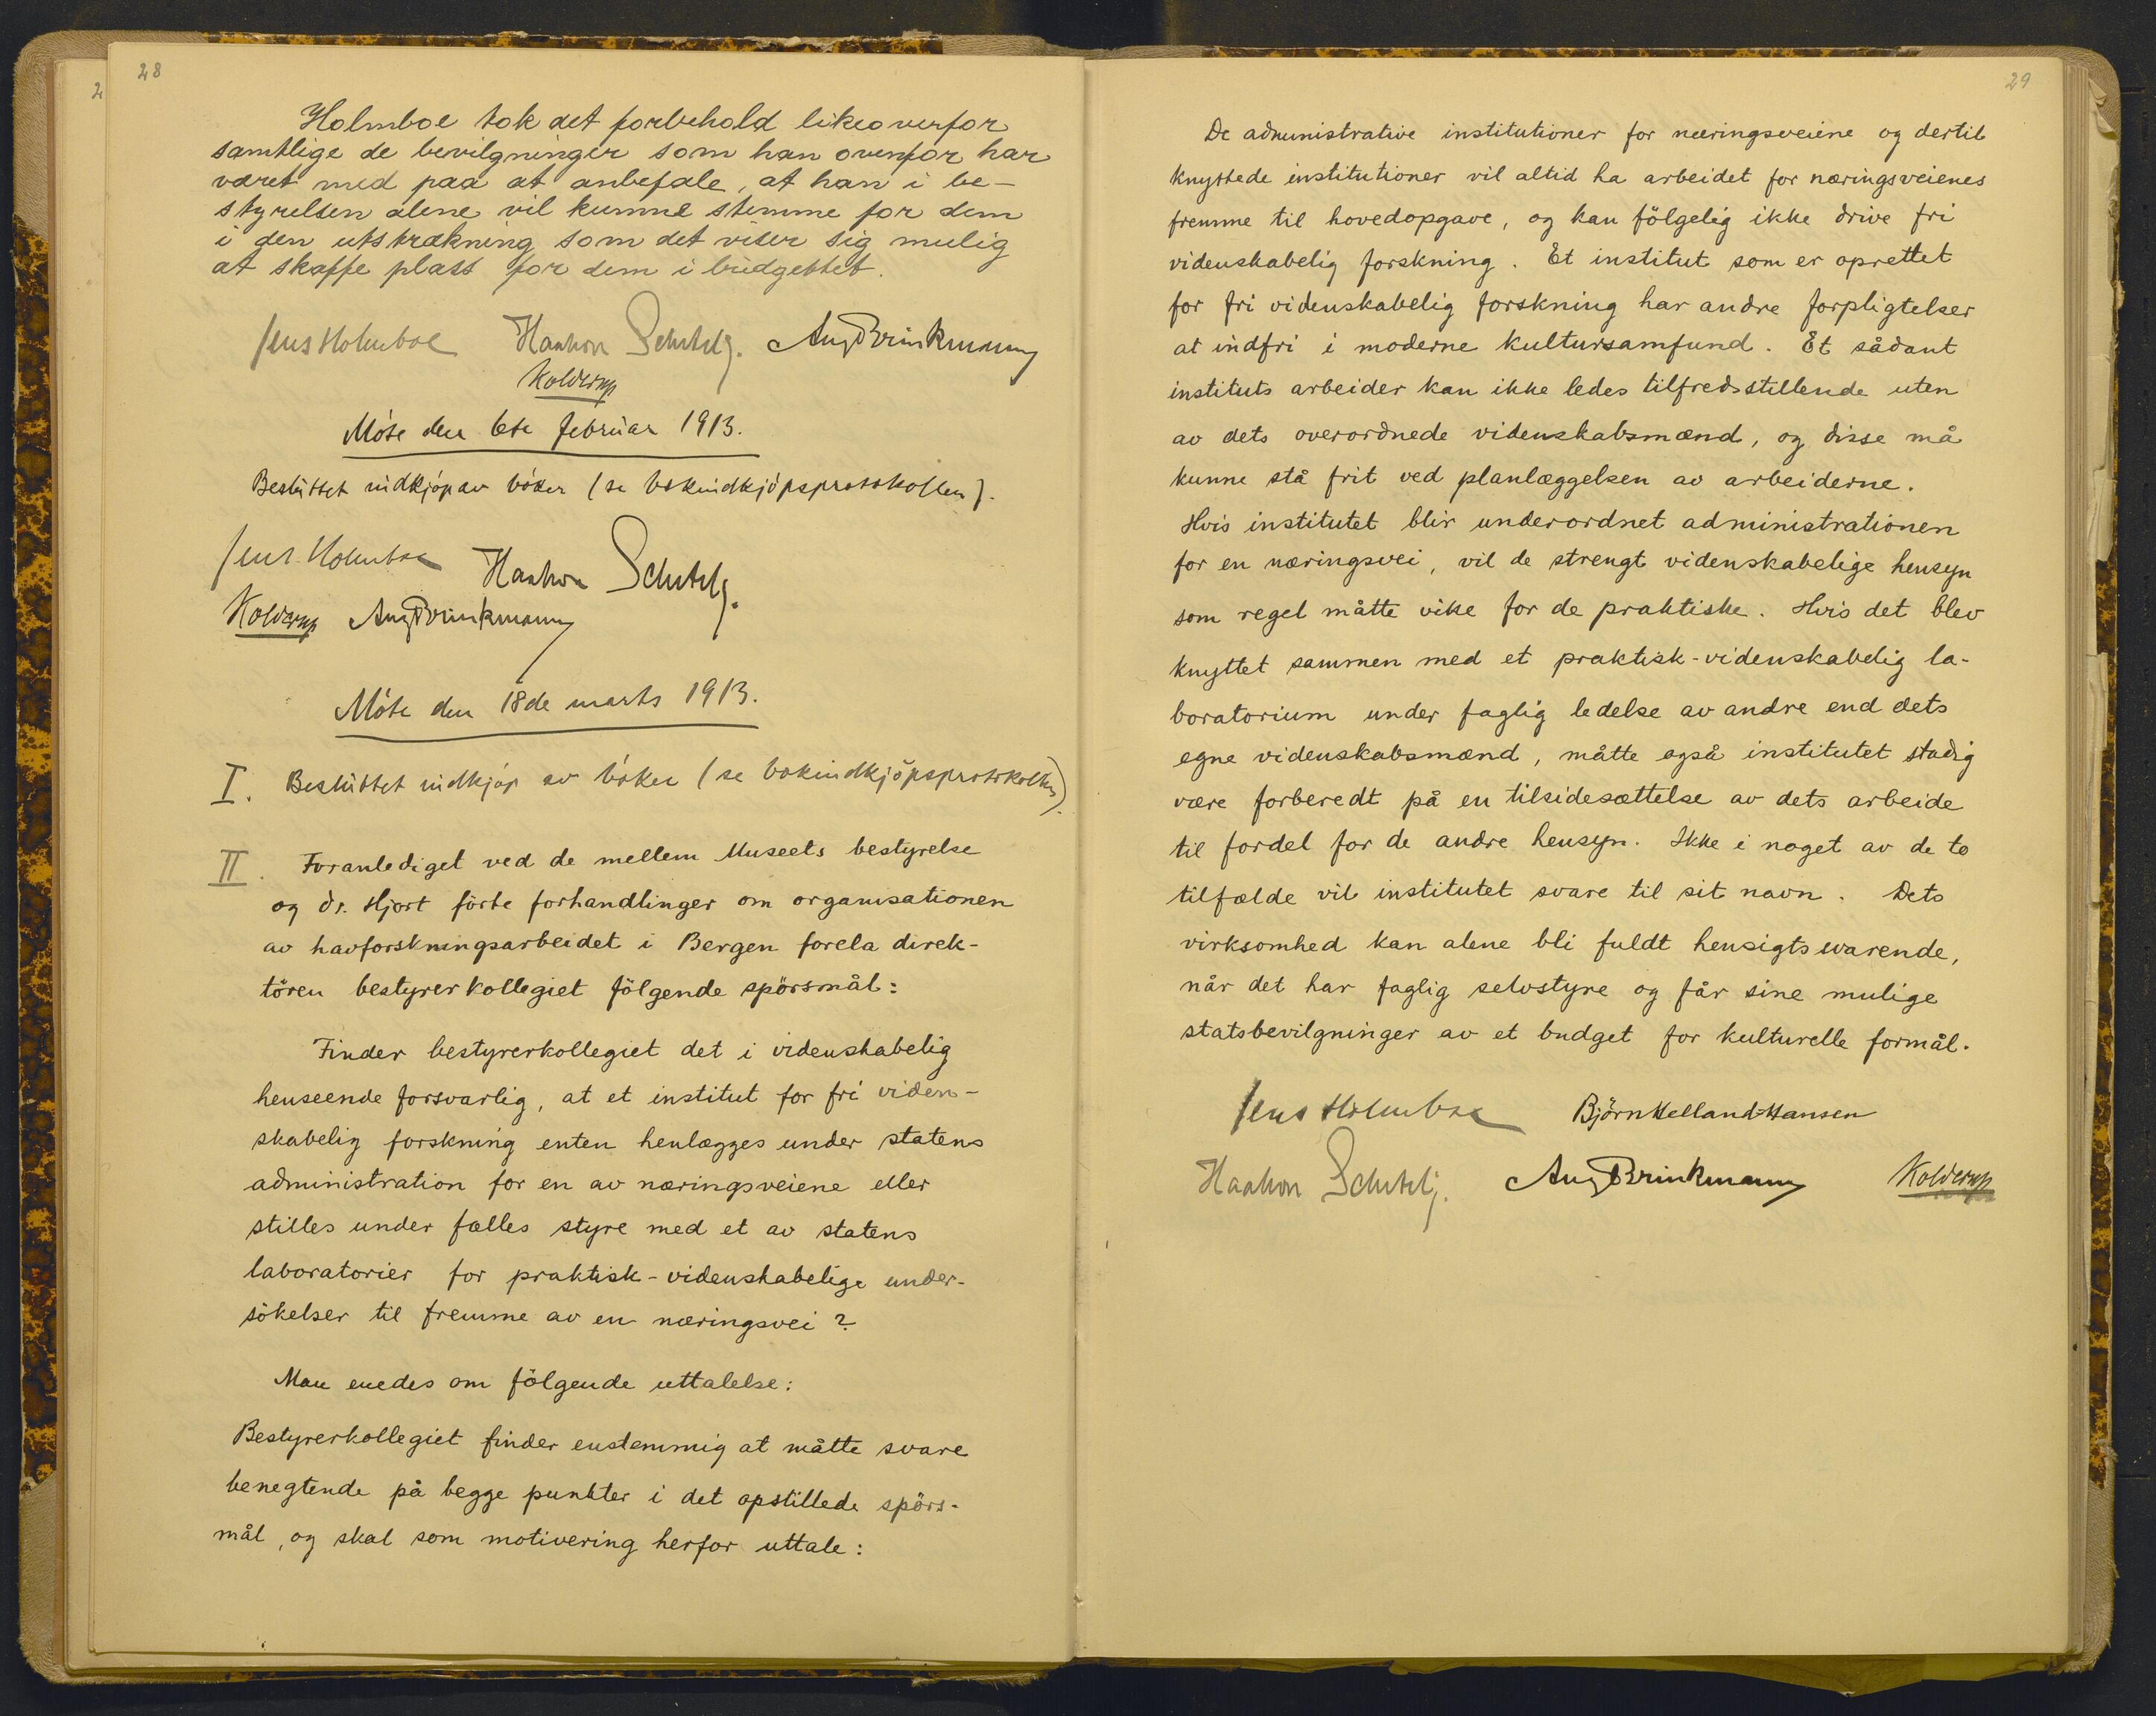 28
Holmboe tok det forbehold likeoverfor
samtlige de bevilgninger som han ovenfor har
været med paa at anbefale, at han i be-
styrelsen alene vil kunne stemme for dem
i den utstrækning som det viser sig mulig
at skaffe plass for dem i budgettet.
Jens Holmboe Haakon Schetelig. Aug Brinkmann
Kolderup
Möte den 6te februar 1913.
Besluttet indkjöp av böker (se bokindkjöpsprotokollen).
Jens Holmboe Haakon Schetelig.
Kolderup Aug Brinkmann
Möte den 18de marts 1913.
I. Besluttet indkjöp av böker (se bokindkjöpsprotokollen).
II. Foranlediget ved de mellem Museets bestyrelse
og dr. Hjort förte forhandlinger om organisationen
av havforskningsarbeidet i Bergen forela direk-
tören bestyrerkollegiet fölgende spörsmål:
Finder bestyrerkollegiet det i videnskabelig
henseende forsvarlig, at et institut for fri viden-
skabelig forskning enten henlægges under statens
administration for en av næringsveiene eller
stilles under fælles styre med et av statens
laboratorier for praktisk-videnskabelige under-
sökelser til fremme av en næringsvei?
Man enedes om fölgende uttalelse:
Bestyrerkollegiet finder enstemmig at måtte svare
benegtende på begge punkter i det opstillede spörs-
mål, og skal som motivering herfor uttale:
29
De administrative institutioner for næringsveiene og dertil
knyttede institutioner vil altid ha arbeidet for næringsveienes
fremme til hovedopgave, og kan fölgelig ikke drive fri
videnskabelig forskning. Et institut som er oprettet
for fri videnskabelig forskning har andre forpligtelser
at indfri i moderne kultursamfund. Et sådant
instituts arbeider kan ikke ledes tilfredsstillende uten
av dets overordnede videnskabsmænd, og disse må
kunne stå frit ved planlæggelsen av arbeiderne.
Hvis institutet blir underordnet administrationen
for en næringsvei, vil de strengt videnskabelige hensyn
som regel måtte vike for de praktiske. Hvis det blev
knyttet sammen med et praktisk-videnskabelig la-
boratorium under faglig ledelse av andre end dets
egne videnskabsmænd, måtte også institutet stadig
være forberedt på en tilsidesættelse av dets arbeide
til fordel for de andre hensyn. Ikke i noget av de to
tilfælde vil institutet svare til sit navn. Dets
virksomhed kan alene bli fuldt hensigtsvarende,
når det har faglig selvstyre og får sine mulige
statsbevilgninger av et budget for kulturelle formål.
Jens Holmboe Björn Helland-Hansen
Haakon Schetelig. Aug Brinkmann Kolderup